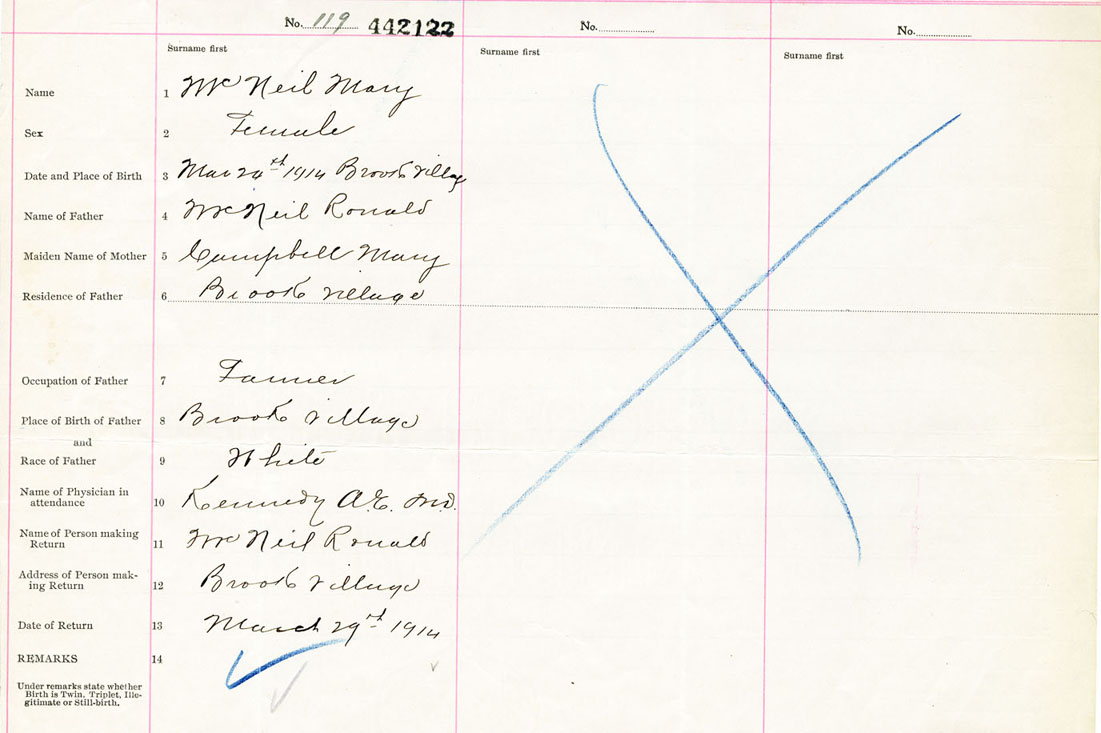 No. 119 442122 No. No.
Surname first Surname first Surname first
Name 1 McNeil Mary
Sex 2 Female
Date and Place of Birth 3 Mar 1914 Brook Village
Name of Father 4 McNeil Ronald
Maiden Name of Mother 5 Campbell Mary
Residence of Father 6 Brook Village
Occupation of Father 7 Farmer
Place of Birth of Father 8 Brook Village
and
Race of Father 9 White
Name of Physician in
attendance 10 Kennedy A.E. M.D.
Name of Person making
Return 11 McNeil Ronald
Address of Person mak-
ing Return 12 Brook Village
Date of Return 13 March 29th 1914
REMARKS 14
Under remarks state whether
Birth is Twin, Triplet, Ille-
gitimate or Still-birth.